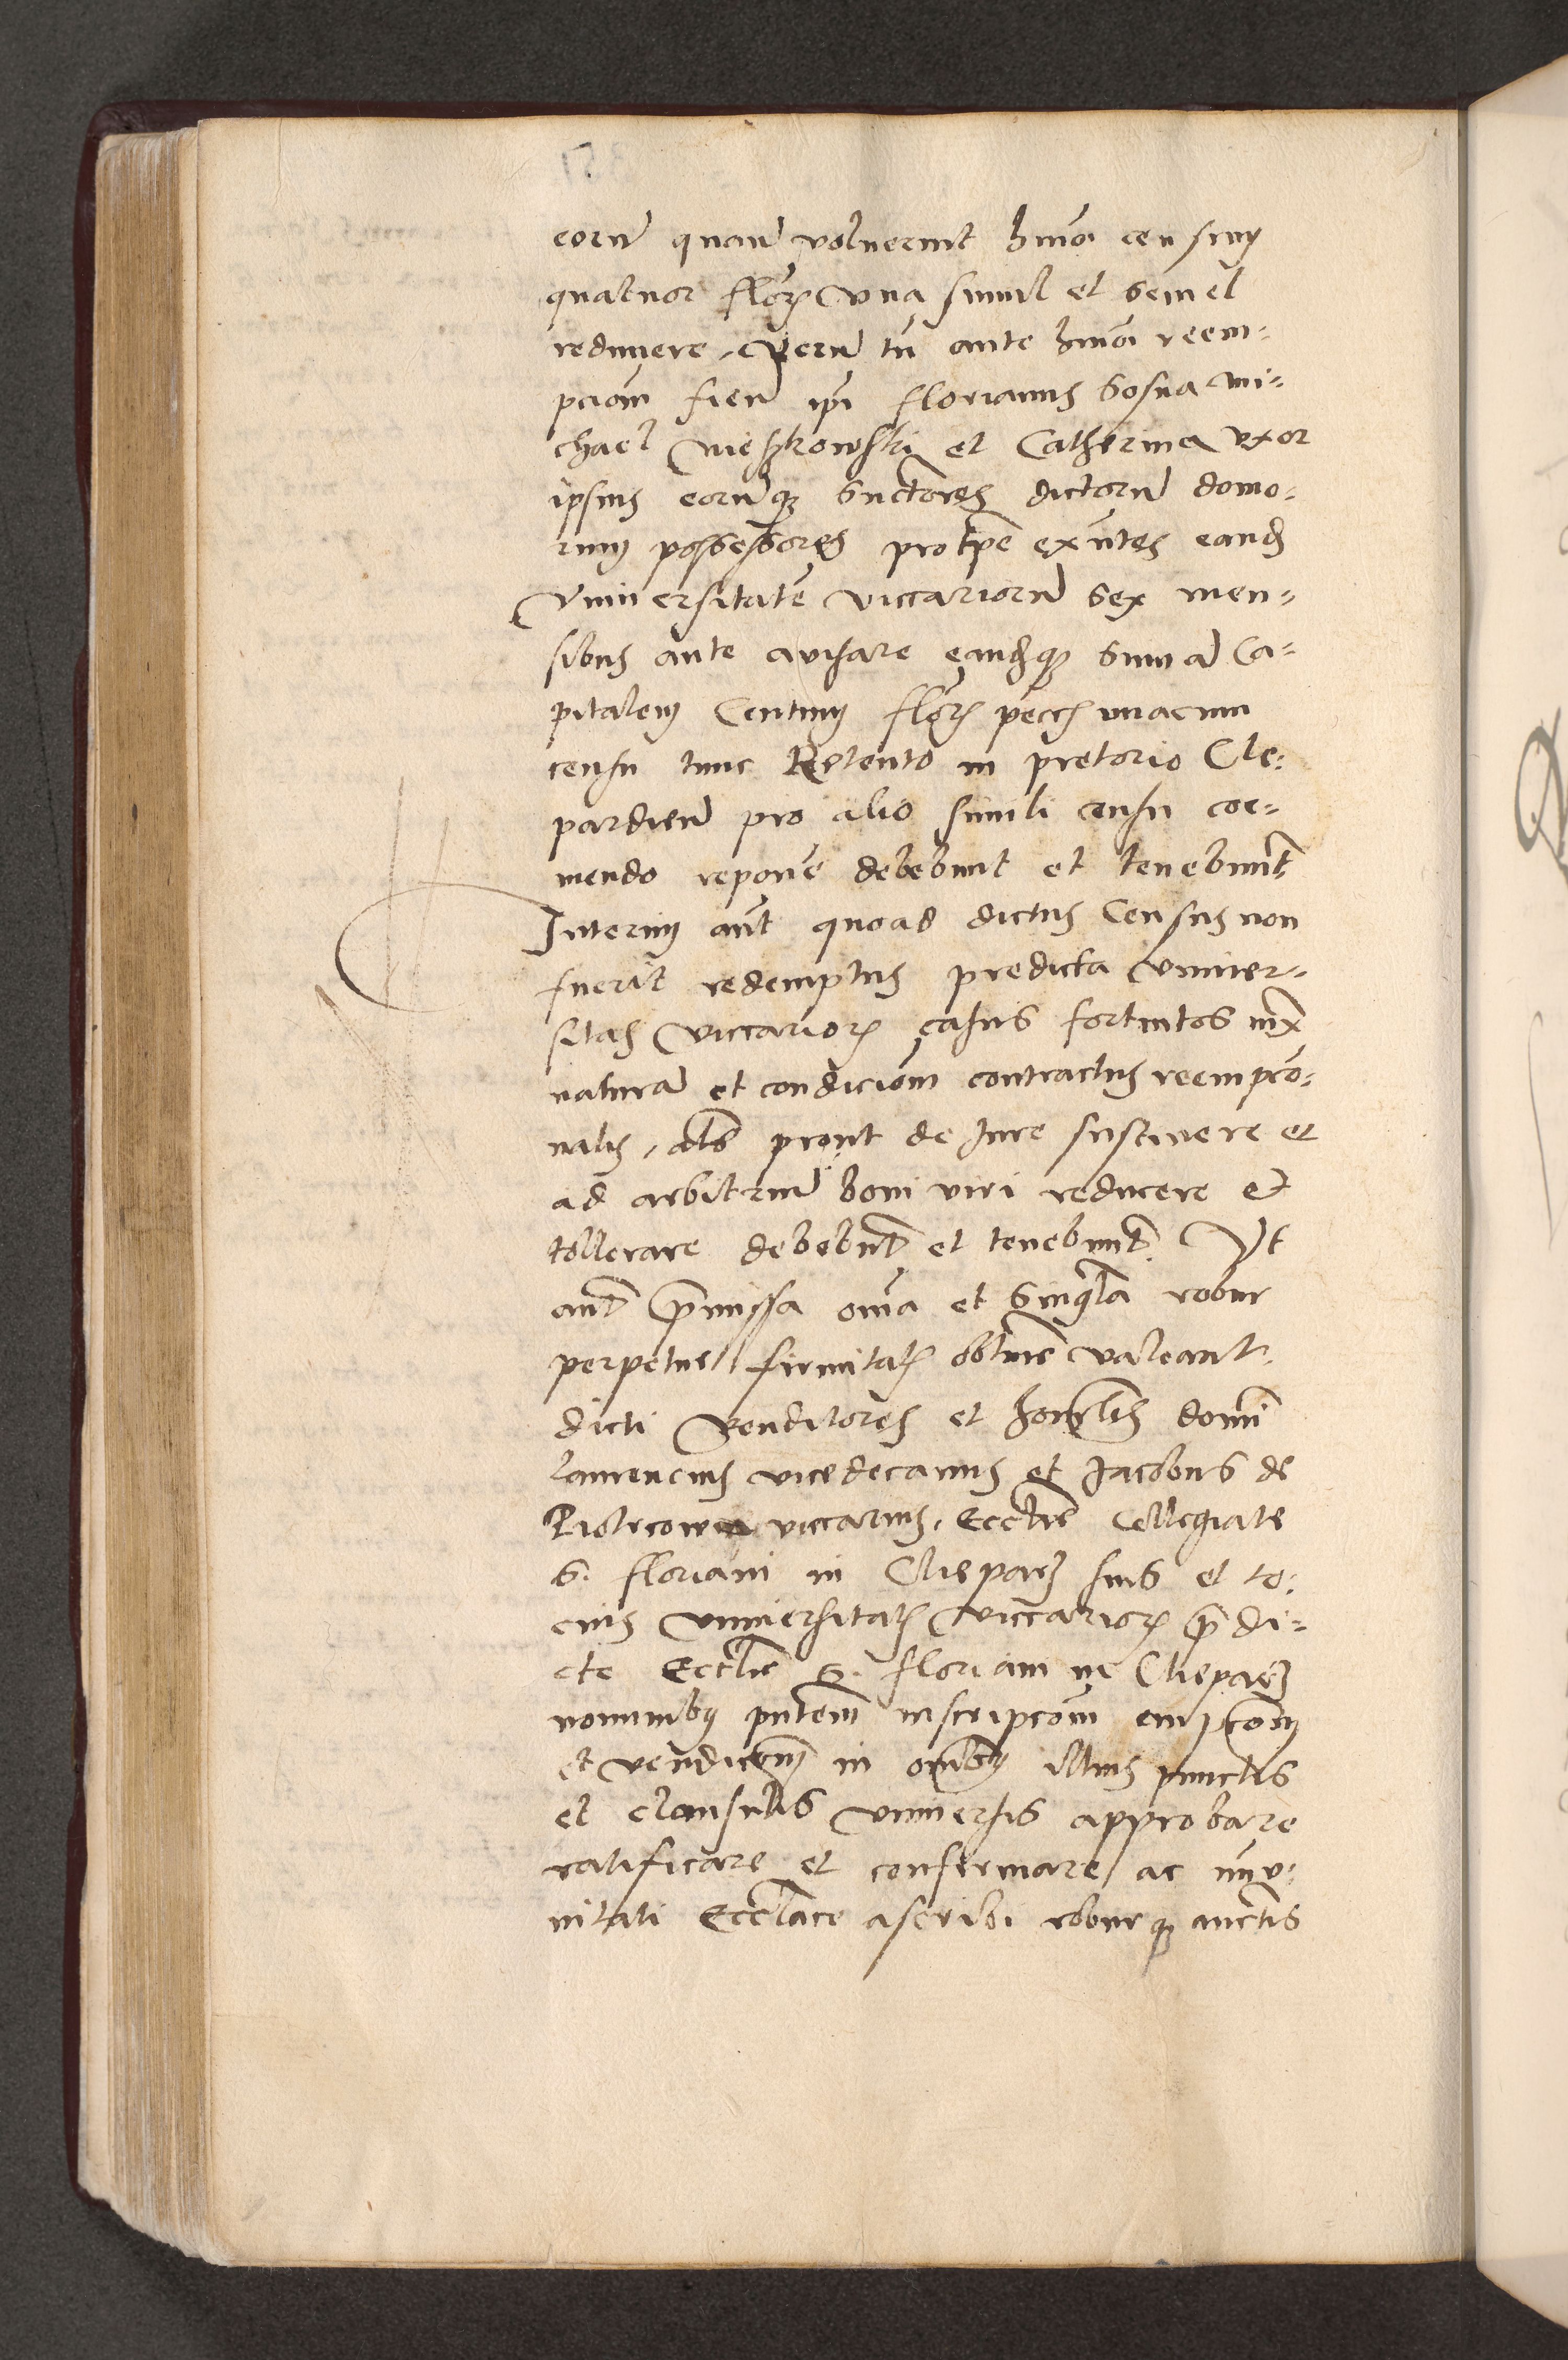 eorum quam voluerint hmoi censum
quatuor floren vna simul et semel
redimere, verum tn ante hmoi reem-
pciom fiend ipi Florianus Sosna Mi-
chael Mieszkowski et Catherina vxor
ipsius eorumque Suctores dictorum domo-
rum possessores protpe exntes eand
Vniuersitate viccariorum sex men-
sibus ante auisare eandque summam Ca-
pitalem Centum floren pecc vnacum
censu tunc Retento in pretorio Cle-
pardien pro alio simili censu coe-
mendo repone debebunt et tenebunt
Interim aut quoad dictus Census non
fuerit redemptus predicta vniuer-
sitas viccarior casus fortuitos iux
naturam et condiciom contractus reempcio-
nalis, als prout de Jure sustinere et
ad arbitrium boni viri reducere et
tollerare debebunt et tenebunt. Vt
aut pmissa omia et singula robur
perpetue firmitatis obtine valeant
dicti Venditores et honorles domi
Laurencius vicedecanus et Jacobus de
Piotrcowia viccarius, Ecclie Collegiate
S. Floriani in Clepar suis et to-
cius vniuersitatis viccarior pdi-
cte Ecclie S. Floriani in Clepar
nominibus pntem inscripcom empcom
et vendicom in omibus illius punctis
et clausulis vniuersis approbare
ratificare et confirmare ac immu-
nitati Eccliace ascribi roburque auctis